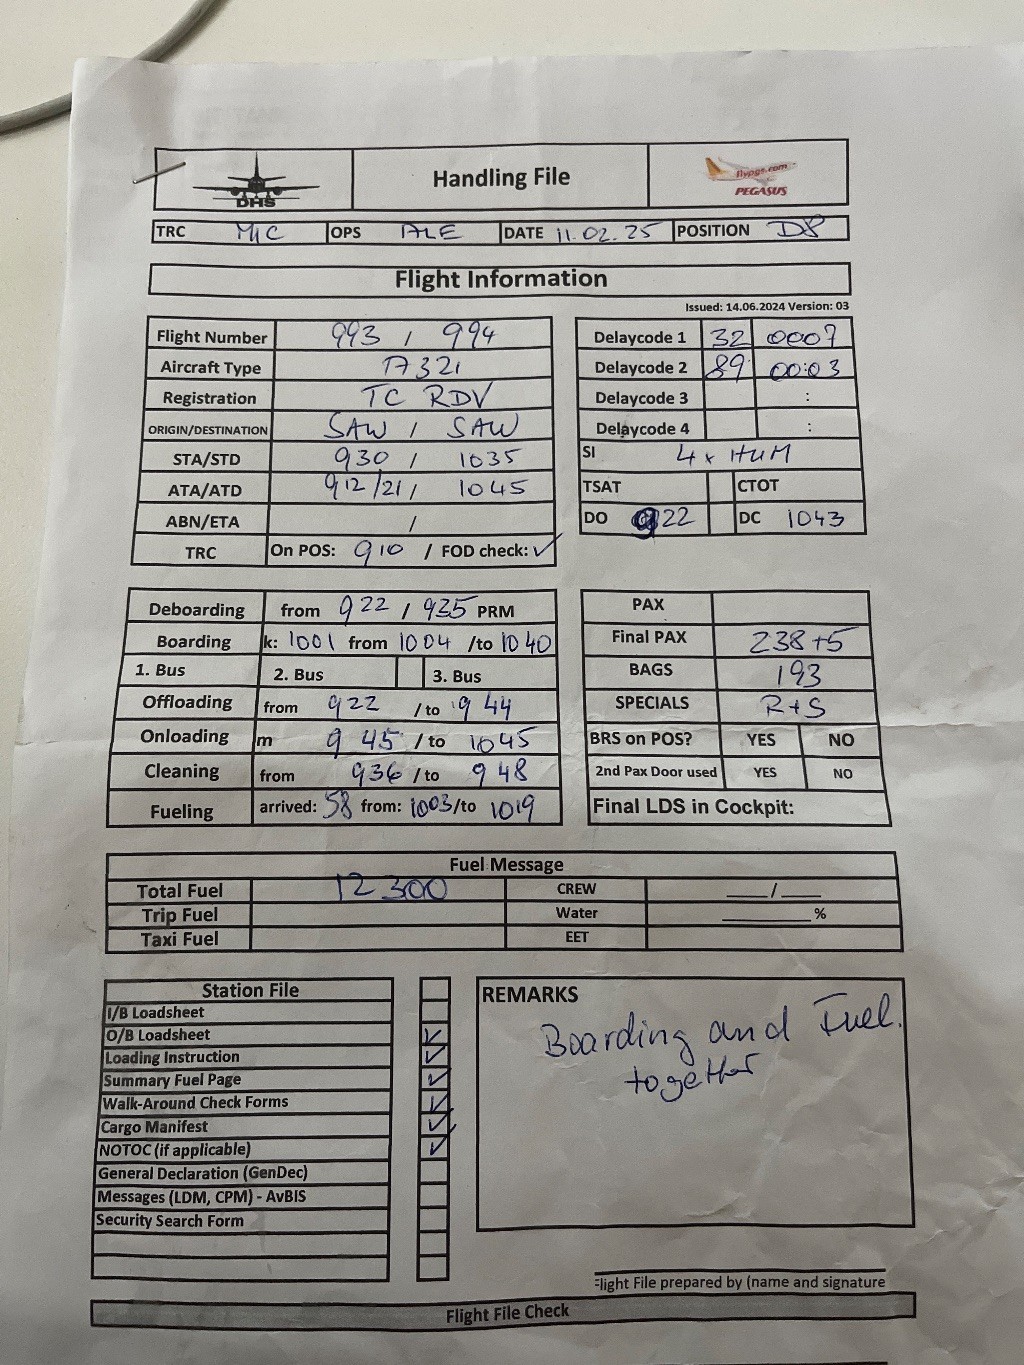 DHS
Handling File
flypgs.com
PEGASUS
TRC MIC OPS ALE DATE 11.02.25 POSITION D8
Flight Information
Issued: 14.06.2024 Version: 03
Flight Number 993 / 994
Aircraft Type A321
Registration TC RDV
ORIGIN/DESTINATION SAW / SAW
STA/STD 930 / 1035
ATA/ATD 912/21 / 1045
ABN/ETA /
TRC On POS: 910 / FOD check: ✓
Delaycode 1 32 0007
Delaycode 2 89 00:03
Delaycode 3 :
Delaycode 4 :
SI 4x HUM
TSAT CTOT
DO 922 DC 1043
Deboarding from 922 / 935 PRM
Boarding k: 1001 from 1004 /to 1040
1. Bus 2. Bus 3. Bus
Offloading from 922 /to 944
Onloading m 945 /to 1045
Cleaning from 936 /to 948
Fueling arrived: 58 from: 1003/to 1019
PAX
Final PAX 238+5
BAGS 193
SPECIALS R+S
BRS on POS? YES NO
2nd Pax Door used YES NO
Final LDS in Cockpit:
Fuel Message
Total Fuel 12300 CREW ____/____
Trip Fuel Water _________%
Taxi Fuel EET
Station File
I/B Loadsheet
O/B Loadsheet ✓
Loading Instruction ✓
Summary Fuel Page ✓
Walk-Around Check Forms ✓
Cargo Manifest ✓
NOTOC (if applicable) ✓
General Declaration (GenDec)
Messages (LDM, CPM) - AvBIS
Security Search Form
REMARKS
Boarding and Fuel.
together
Flight File prepared by (name and signature
Flight File Check